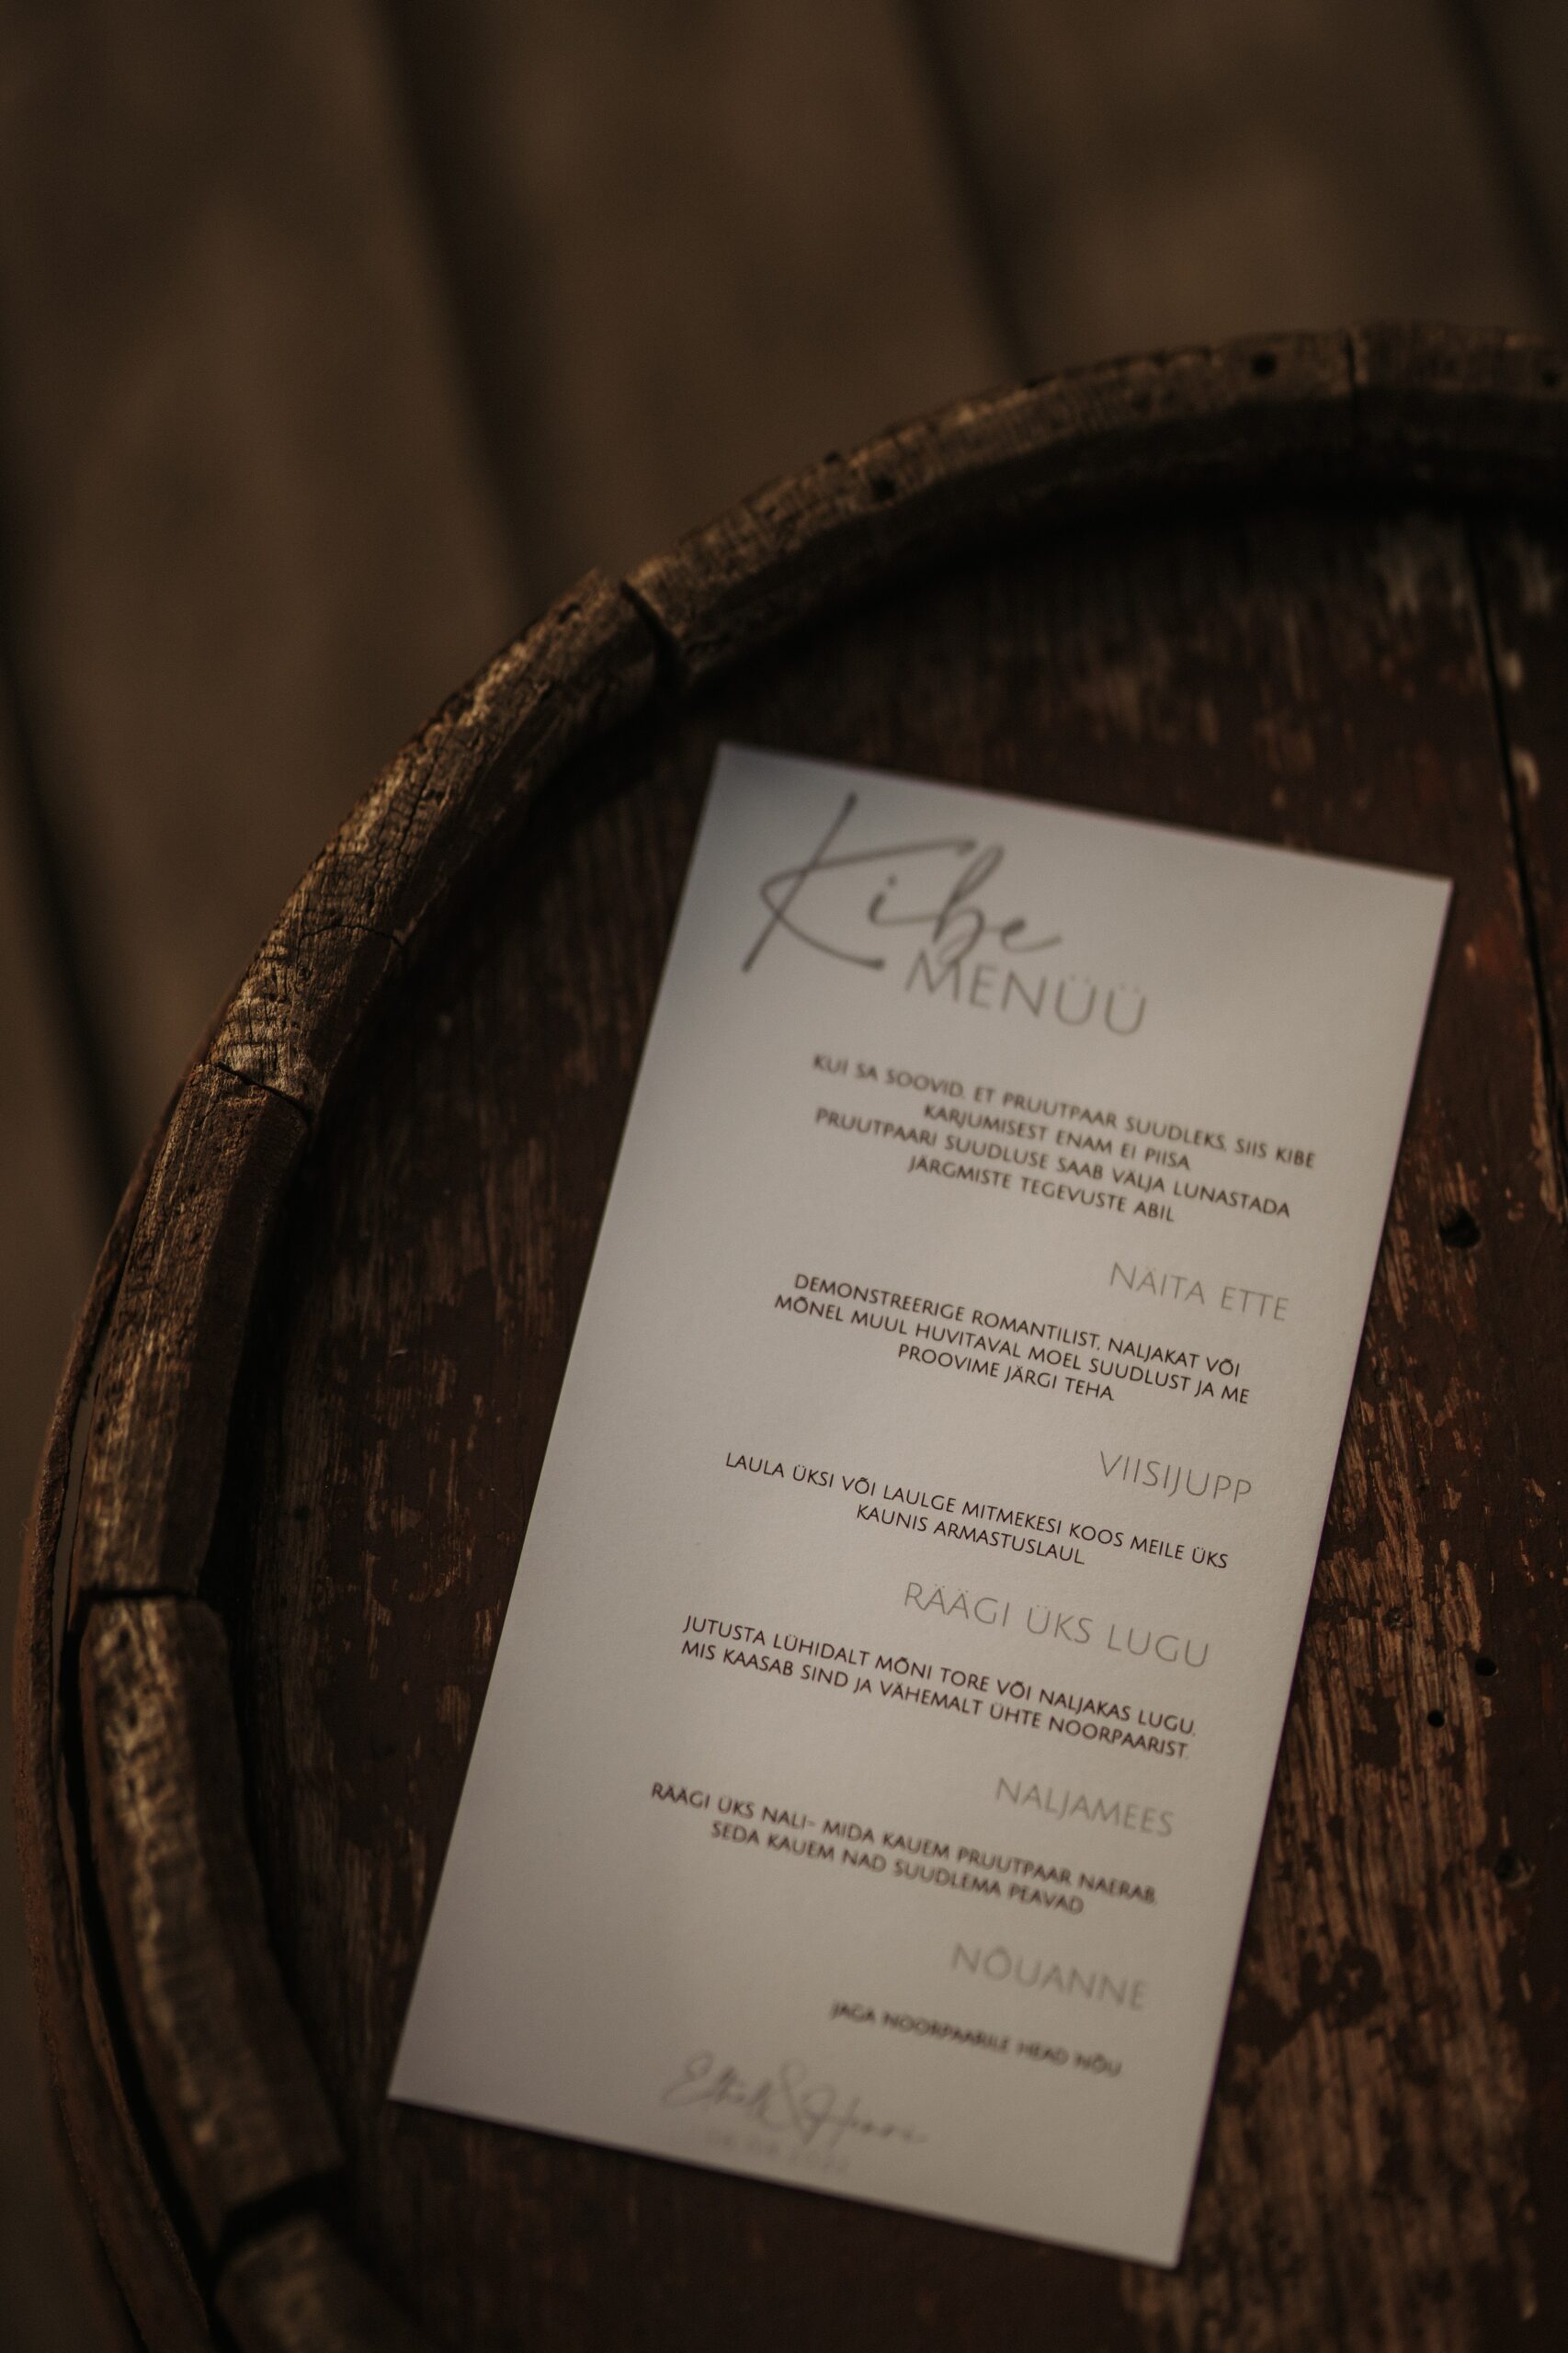 Kibe
MENÜÜ
KUI SA SOOVID, ET PRUUTPAAR SUUDLEKS, SIIS KIBE
KARJUMISEST ENAM EI PIISA
PRUUTPAARI SUUDLUSE SAAB VÄLJA LUNASTADA
JÄRGMISTE TEGEVUSTE ABIL
NÄITA ETTE
DEMONSTREERIGE ROMANTILIST, NALJAKAT VÕI
MÕNEL MUUL HUVITAVAL MOEL SUUDLUST JA ME
PROOVIME JÄRGI TEHA
VIISIJUPP
LAULA ÜKSI VÕI LAULGE MITMEKESI KOOS MEILE ÜKS
KAUNIS ARMASTUSLAUL
RÄÄGI ÜKS LUGU
JUTUSTA LÜHIDALT MÕNI TORE VÕI NALJAKAS LUGU,
MIS KAASAB SIND JA VÄHEMALT ÜHTE NOORPAARIST.
NALJAMEES
RÄÄGI ÜKS NALI- MIDA KAUEM PRUUTPAAR NAERAB,
SEDA KAUEM NAD SUUDLEMA PEAVAD
NÕUANNE
JAGA NOORPAARILE HEAD NÕU